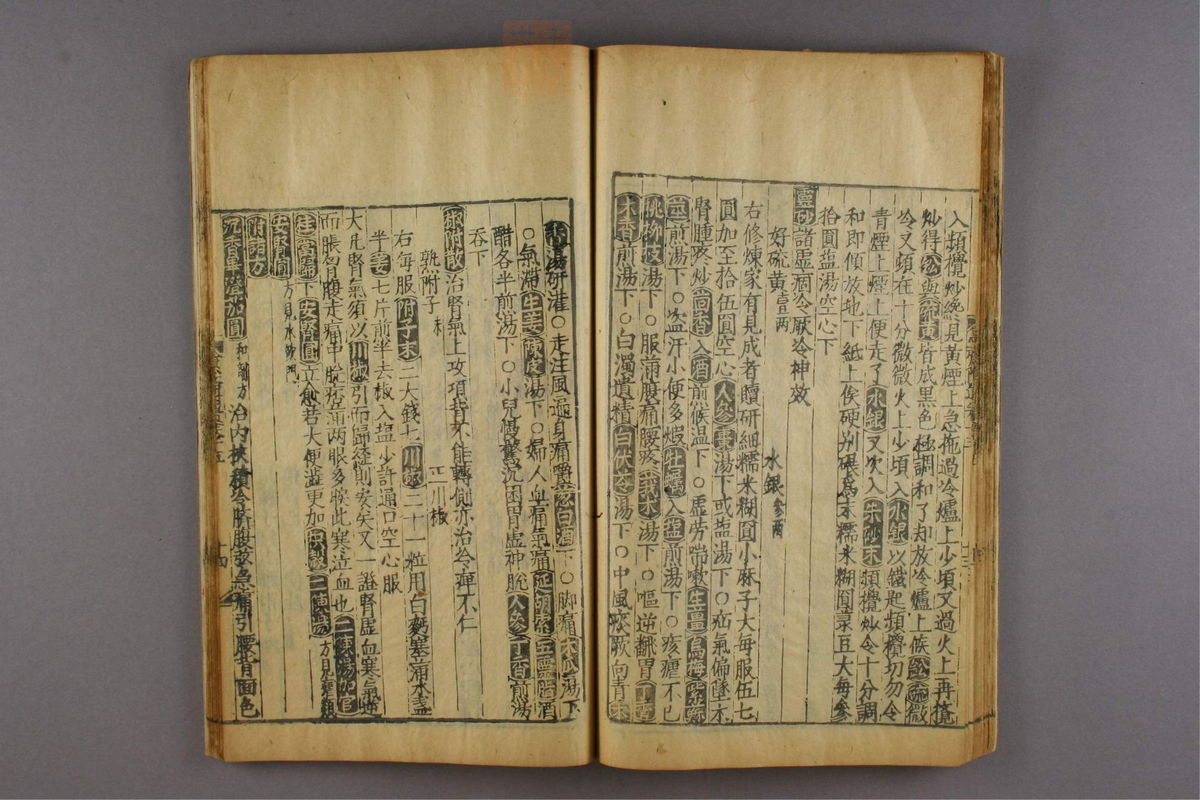 入頻攪炒纔見黃煙上急拖過冷爐上少頃又過火上再攪
炒得鈆與硫黃皆成黑色極調和了却放冷爐上候鈆硫微
冷又頻在十分微微火上少頃入水銀以鐵匙頻攪切勿令
青煙上煙上便走了水銀又次入朱砂末頻攪炒令十分調
和即傾放地下紙上候硬別碾爲末糯米糊圓菉豆大每叄
拾圓盐湯空心下
靈砂諸虛痼冷厥冷神效
好硫黃壹兩 水銀叄兩
右修煉家有見成者贖研細糯米糊圓小麻子大每服伍七
圓加至拾伍圓空心人參棗湯下或盐湯下○疝氣偏墜木
腎腫疼炒茴香入酒煎候溫下○虛劳喘嗽生薑烏梅紫蘇
煎湯下○盗汗小便多煆牡蠣入盐煎湯下○痎瘧不已
桃柳枝湯下○服滿腹痛腰疼莪术湯下○嘔逆翻胃丁香
木香煎湯下○白濁遺精白伏苓湯下○中風痰厥向青
湯研灌○走注風遍身痛白酒下○脚痛木瓜湯下
○氣滯生姜陳皮湯下○婦人血痛氣痛延胡索五靈脂酒
醋各半煎湯下○小兒偶驚沉困胃虛神脫人參丁香煎湯
吞下
椒附散治腎氣上攻項背不能轉側亦治冷痺不仁
熟附子末 川椒
右每服附子末二大錢七川椒二十一粒用白麪塞滿水盞
半姜七片煎半去椒入盐少許通口空心服
大凡腎氣須以川椒引而歸經則安矣又一證腎虛血寒氣逆
而脹胃腹走痛串脫痞滿两眼多睺此寒泣血也二陳湯加官
桂當歸下安腎圓立愈若大便澁更加二陳湯方見
安腎圓方見水門
附諸方
沉香蓽澄茄圓和劑方治内挾積冷臍腹絞急痛引腰背面色